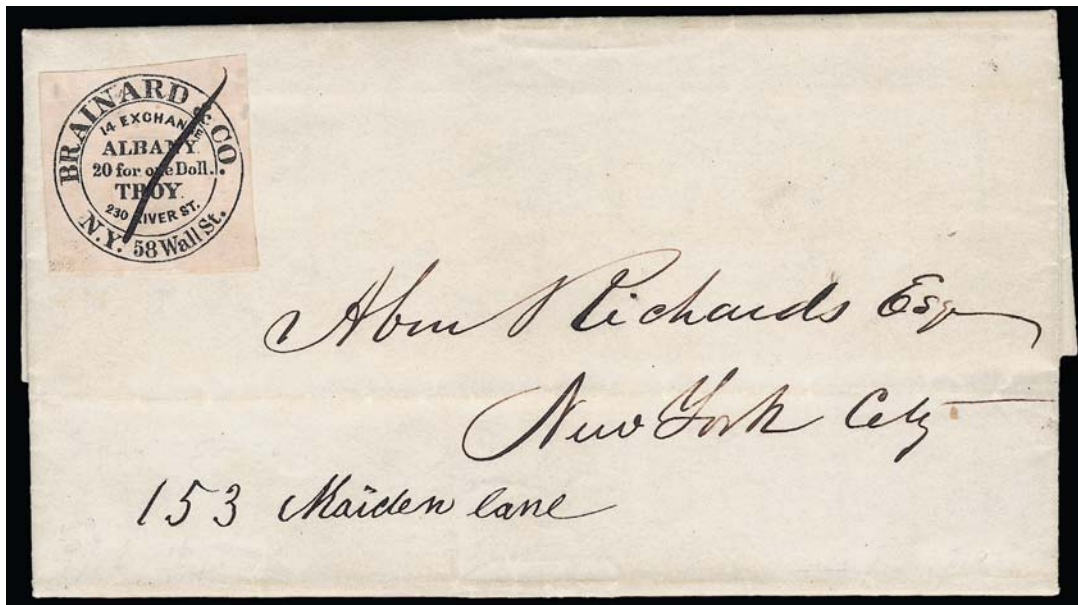 BRAINARD & CO.
14 EXCHAN
ALBANY.
20 for one Doll.
TROY.
230 RIVER ST.
N.Y. 58 Wall St.
Abm Richards Esqr
New York City
153 Maiden lane